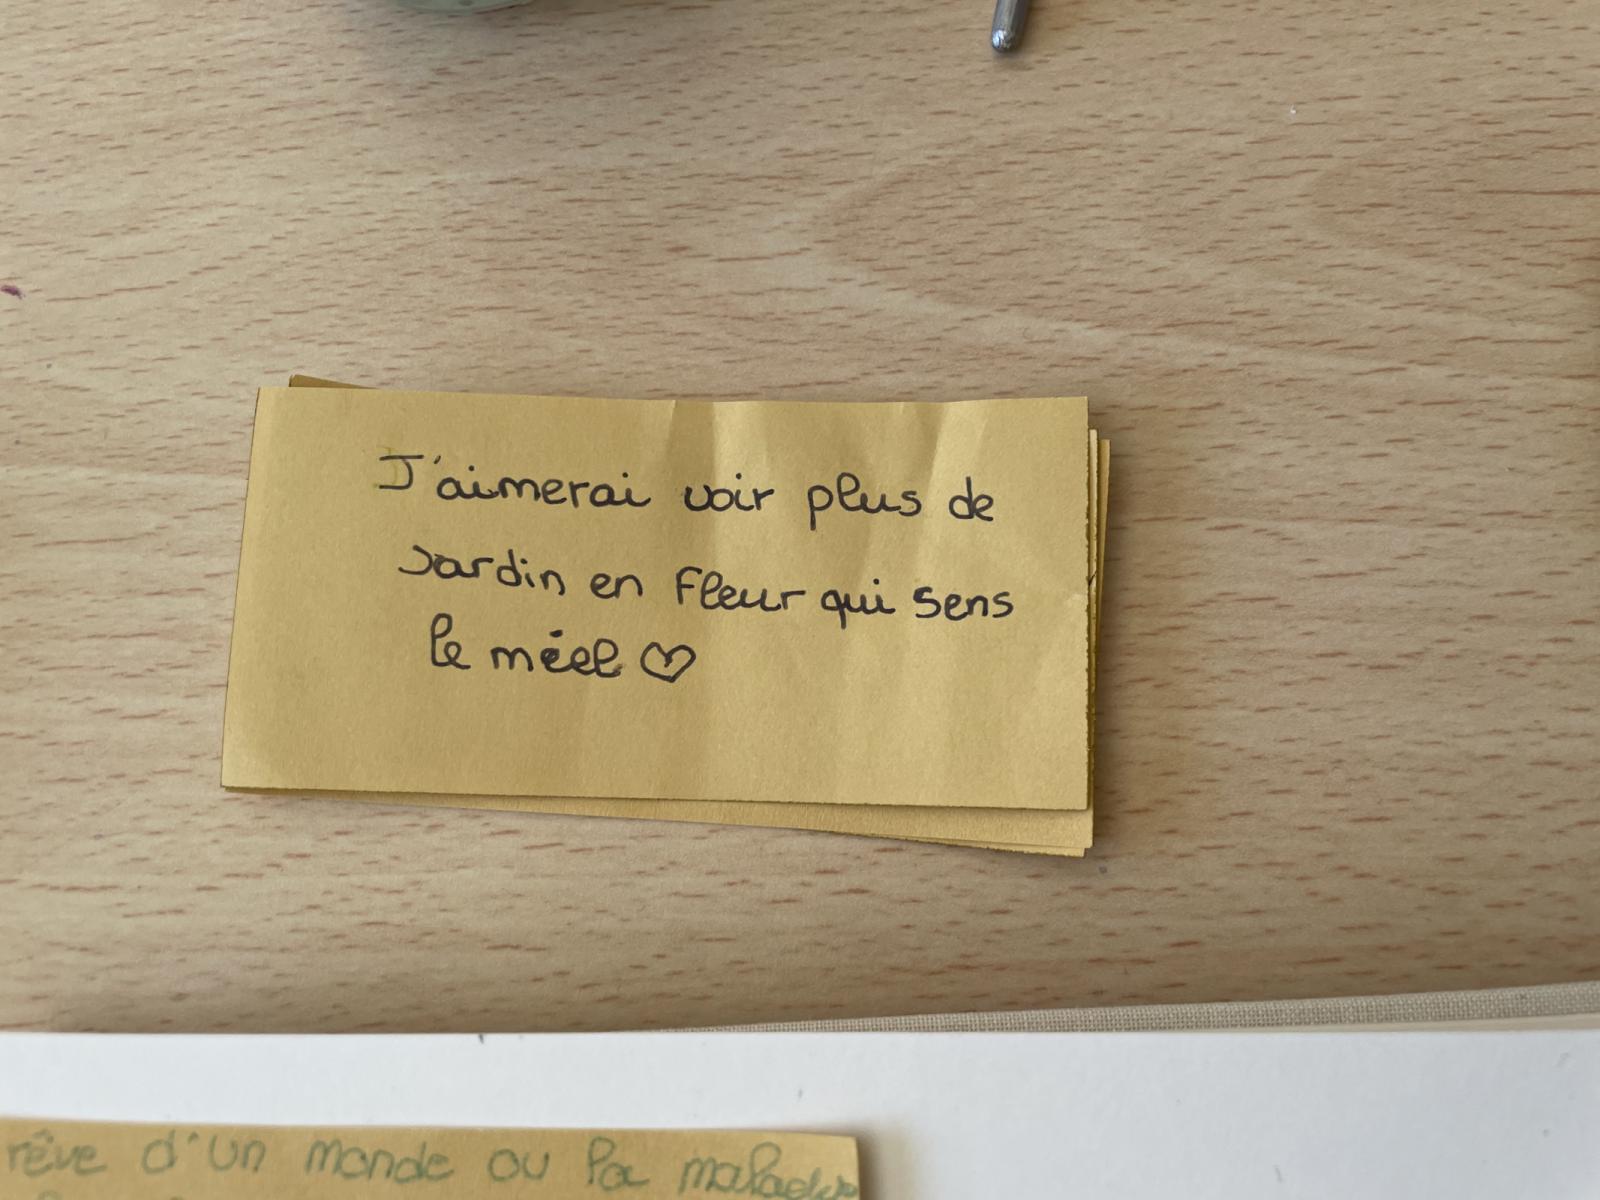 J'aimerai voir plus de
Jardin en Fleur qui sens
le méel ♡
rêve d'un monde ou la maladie